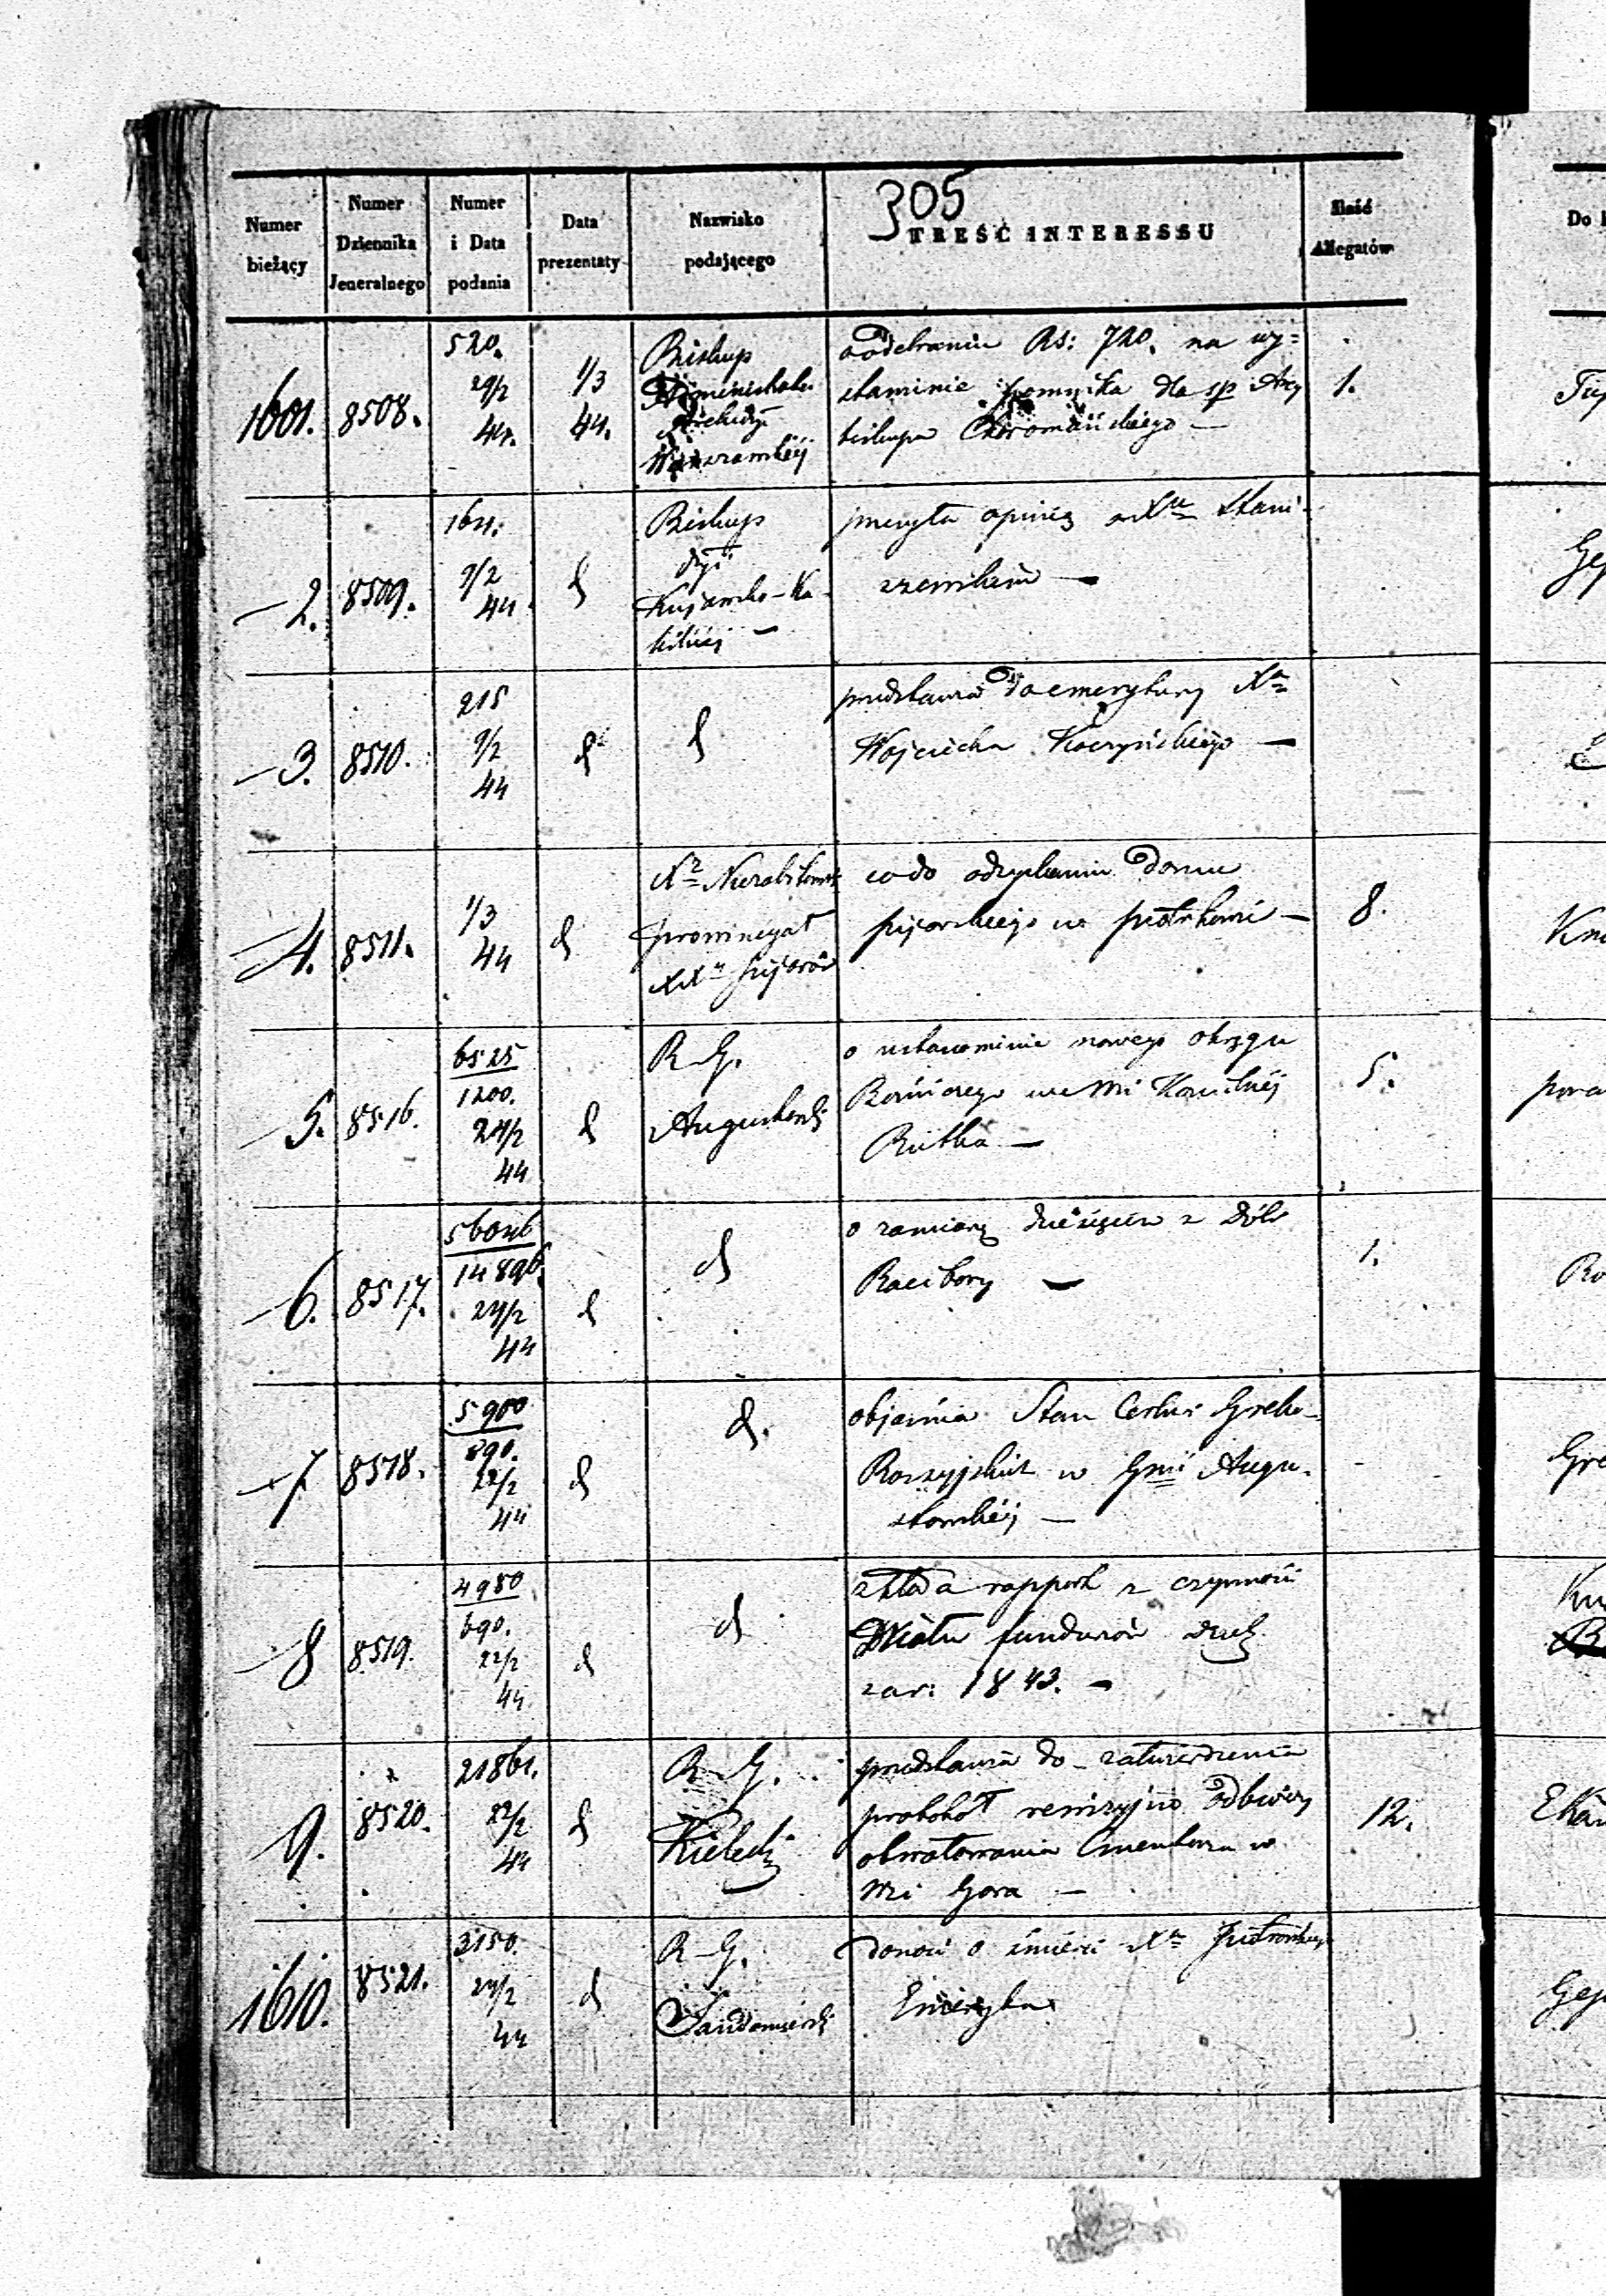 305
Numer bieżący
Numer Dziennika Jeneralnego
Numer i Data podania
Data prezentaty
Nazwisko podającego
TREŚĆ INTERESSU
Ilość Allegatów
1601. 8508. 520. 29/2 44. 1/3 44.
Biskup
Administrator
Archidy:
Warszawskiéj
o odebraniu Rs: 720. na wy=
stawienie pomnika dla sp Arcy
biskupa Choromańskiego —
1.
— 2. 8509. 164. 9/2 44. d
Biskup
dyi
Kujawsko-Ka-
liskiej —
przesyła opinię o Xu Stani-
szewskim —
— 3. 8510. 215 9/2 44 d d
przedstawia do emerytury Xa
Wojciecha Koczyńskiego —
— 4. 8511. 1/3 44 d
X
prowincyał
XX Pijarów
co do odzyskania Domu
pijarskiego w Piotrkowie —
8.
— 5. 8516. 6525 1200. 24/2 44 d
R. G.
Augustowski
o ustanowienie nowego okręgu
Bożniczego we Wsi Kościelnéj
Rutka —
5.
— 6. 8517. 56046 14896. 24/2 44 d d
o zamianę dziesięcin z dóbr
Racibory —
1.
— 7 8518. 5900 890. 22/2 44 d d.
objaśnia Stan Cerkwi Greko-
Rossyjskich w Gnii Augu-
stowskiéj —
— 8 8519. 4980 690. 22/2 44 d d
składa rapport z czynności
Wydziału funduszów duch
za r: 1843. —
— 9. 8520. 21861. 22/2 44 d
R. G.
Kielecki
przedstawia do zatwierdzenia
protokół rewizyjno odbiorczy
obwałowania Cmentarza w
Wsi Gora —
12.
1610. 8521. 3150. 24/2 44 d
R. G.
Sandomierski
donosi o śmierci Xa Piotrowskiego
Emeryta